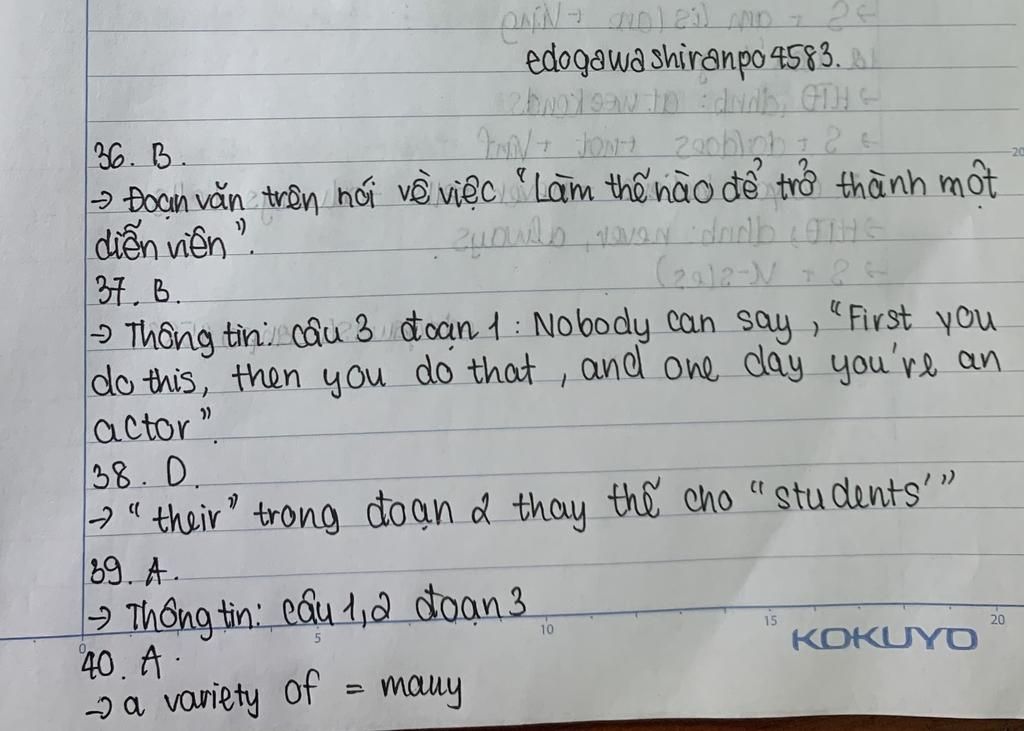 edogawashiranpo4583.
36. B.
→ Đoạn văn trên nói về việc "Làm thế nào để trở thành một
diễn viên".
37. B.
→ Thông tin: câu 3 đoạn 1: Nobody can say, "First you
do this, then you do that, and one day you're an
actor".
38. D.
→ "their" trong đoạn 2 thay thế cho "students'"
39. A.
→ Thông tin: câu 1,2 đoạn 3
0 5 10 15 20
KOKUYO
40. A.
→ a variety of = many